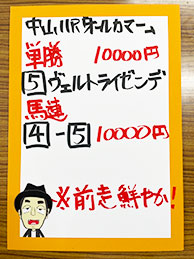 中山11Rオールカマー
単勝 10000円
5 ヴェルトライゼンデ
馬連
4-5 10000円
※前走鮮やか!